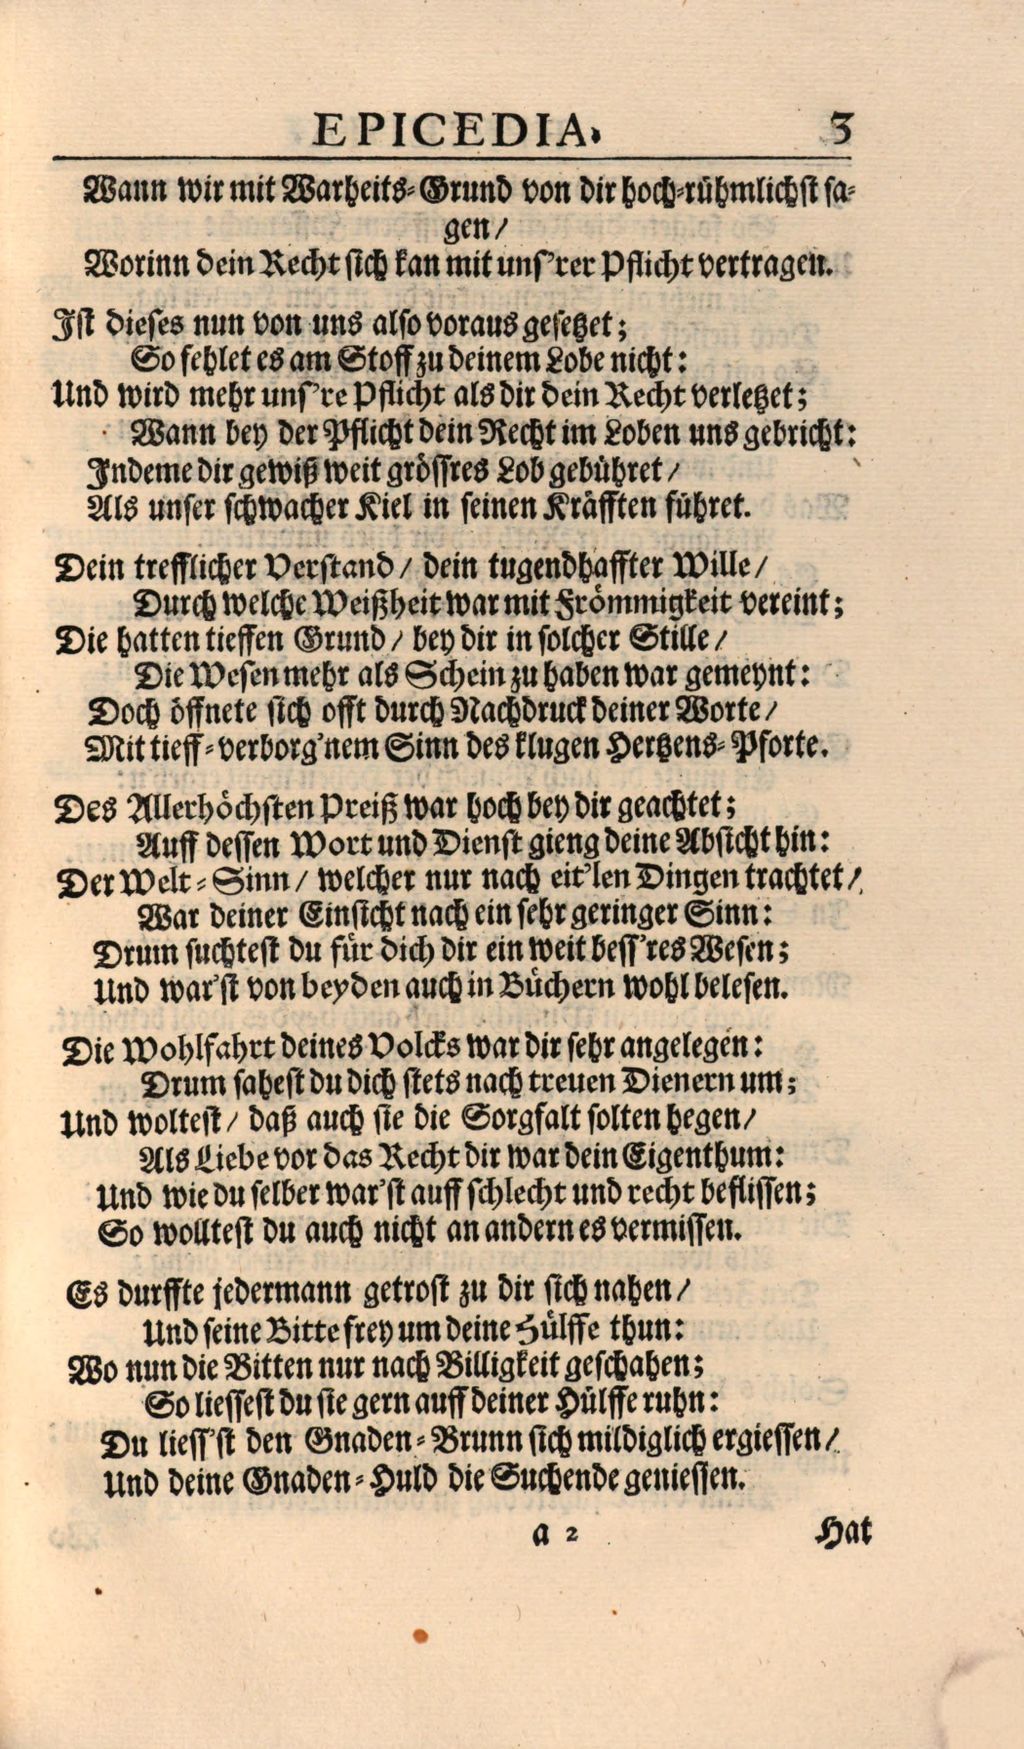 EPICEDIA. 3
Wann wir mit Warheits-Grund von dir hoch-rühmlichst sa-
gen/
Worinn dein Recht sich kan mit uns'rer Pflicht vertragen.
Ist dieses nun von uns also voraus gesetzet;
So fehlet es am Stoff zu deinem Lobe nicht:
Und wird mehr uns're Pflicht als dir dein Recht verletzet;
Wann bey der Pflicht dein Recht im Loben uns gebricht:
Indeme dir gewiß weit grössres Lob gebühret/
Als unser schwacher Kiel in seinen Kräfften führet.
Dein trefflicher Verstand/ dein tugendhaffter Wille/
Durch welche Weißheit war mit Frömmigkeit vereint;
Die hatten tieffen Grund/ bey dir in solcher Stille/
Die Wesen mehr als Schein zu haben war gemeynt:
Doch öffnete sich offt durch Nachdruck deiner Worte/
Mit tieff-verborg'nem Sinn des klugen Hertzens-Pforte.
Des Allerhöchsten Preiß war hoch bey dir geachtet;
Auff dessen Wort und Dienst gieng deine Absicht hin:
Der Welt-Sinn/ welcher nur nach eit'len Dingen trachtet/
War deiner Einsicht nach ein sehr geringer Sinn:
Drum suchtest du für dich dir ein weit bess'res Wesen;
Und war'st von beyden auch in Büchern wohl belesen.
Die Wohlfahrt deines Volcks war dir sehr angelegen:
Drum sahest du dich stets nach treuen Dienern um;
Und woltest/ daß auch sie die Sorgfalt solten hegen/
Als Liebe vor das Recht dir war dein Eigenthum:
Und wie du selber war'st auff schlecht und recht beflissen;
So wolltest du auch nicht an andern es vermissen.
Es durffte jedermann getrost zu dir sich nahen/
Und seine Bitte frey um deine Hülffe thun:
Wo nun die Bitten nur nach Billigkeit geschahen;
So liessest du sie gern auff deiner Hülffe ruhn:
Du liess'st den Gnaden-Brunn sich mildiglich ergiessen/
Und deine Gnaden-Huld die Suchende geniessen.
a 2 Hat